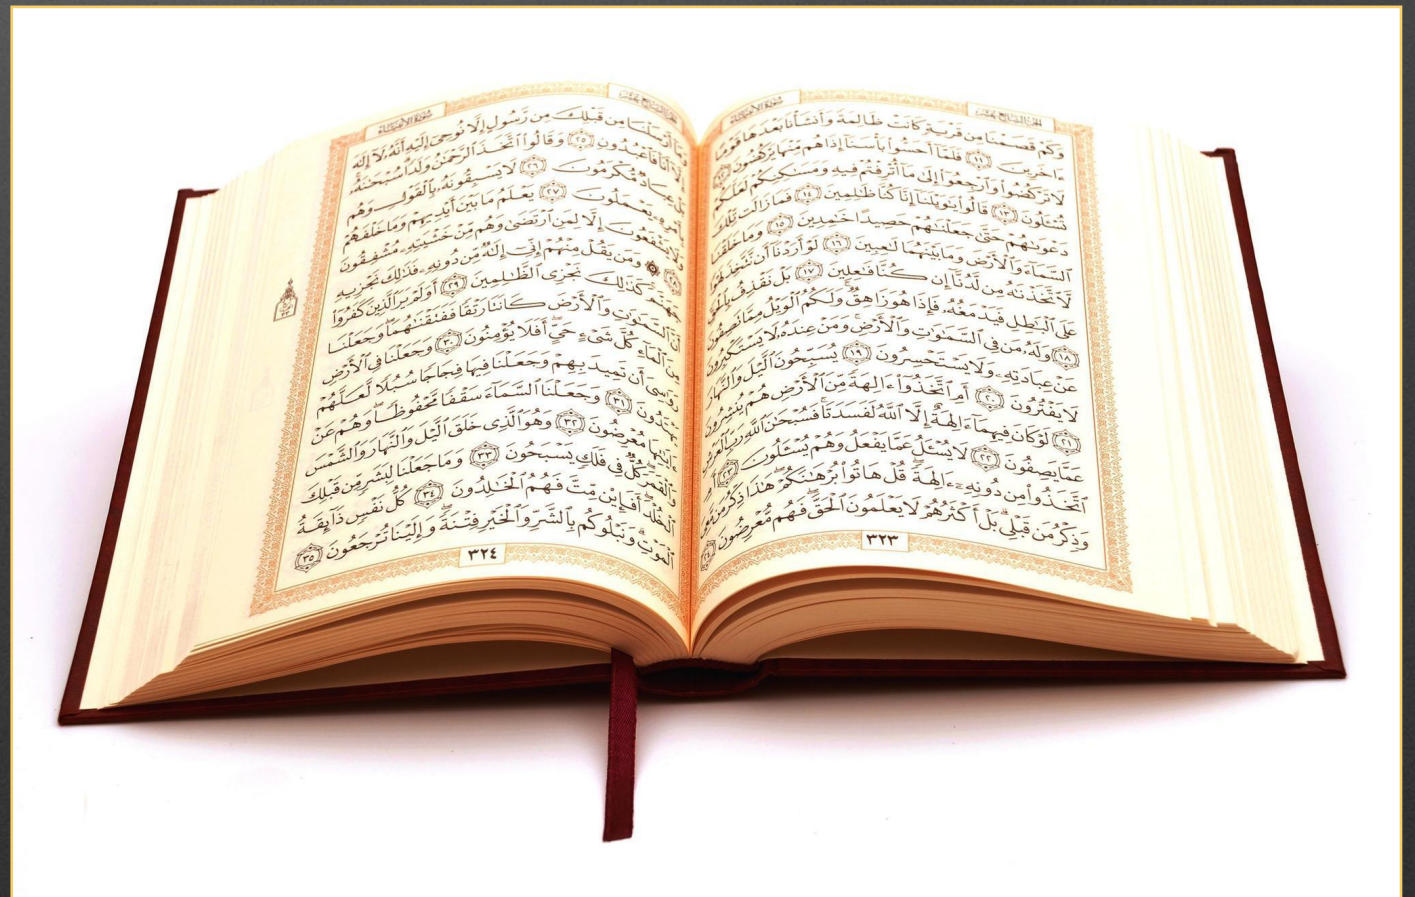 سُورَةُ الأَنبِيَاءِ
الجُزْءُ السَّابِعَ عَشَرَ
وَكَمْ قَصَمْنَا مِن قَرْيَةٍ كَانَتْ ظَالِمَةً وَأَنشَأْنَا بَعْدَهَا قَوْمًا
ءَاخَرِينَ ۝١١ فَلَمَّآ أَحَسُّوا۟ بَأْسَنَآ إِذَا هُم مِّنْهَا يَرْكُضُونَ ۝١٢
لَا تَرْكُضُوا۟ وَٱرْجِعُوٓا۟ إِلَىٰ مَآ أُتْرِفْتُمْ فِيهِ وَمَسَٰكِنِكُمْ لَعَلَّكُمْ
تُسْـَٔلُونَ ۝١٣ قَالُوا۟ يَٰوَيْلَنَآ إِنَّا كُنَّا ظَٰلِمِينَ ۝١٤ فَمَا زَالَت تِّلْكَ
دَعْوَىٰهُمْ حَتَّىٰ جَعَلْنَٰهُمْ حَصِيدًا خَٰمِدِينَ ۝١٥ وَمَا خَلَقْنَا
ٱلسَّمَآءَ وَٱلْأَرْضَ وَمَا بَيْنَهُمَا لَٰعِبِينَ ۝١٦ لَوْ أَرَدْنَآ أَن نَّتَّخِذَ لَهْوًا
لَّٱتَّخَذْنَٰهُ مِن لَّدُنَّآ إِن كُنَّا فَٰعِلِينَ ۝١٧ بَلْ نَقْذِفُ بِٱلْحَقِّ
عَلَى ٱلْبَٰطِلِ فَيَدْمَغُهُۥ فَإِذَا هُوَ زَاهِقٌ ۚ وَلَكُمُ ٱلْوَيْلُ مِمَّا تَصِفُونَ
۝١٨ وَلَهُۥ مَن فِى ٱلسَّمَٰوَٰتِ وَٱلْأَرْضِ ۚ وَمَنْ عِندَهُۥ لَا يَسْتَكْبِرُونَ
عَنْ عِبَادَتِهِۦ وَلَا يَسْتَحْسِرُونَ ۝١٩ يُسَبِّحُونَ ٱلَّيْلَ وَٱلنَّهَارَ
لَا يَفْتُرُونَ ۝٢٠ أَمِ ٱتَّخَذُوٓا۟ ءَالِهَةً مِّنَ ٱلْأَرْضِ هُمْ يُنشِرُونَ
۝٢١ لَوْ كَانَ فِيهِمَآ ءَالِهَةٌ إِلَّا ٱللَّهُ لَفَسَدَتَا ۚ فَسُبْحَٰنَ ٱللَّهِ رَبِّ ٱلْعَرْشِ
عَمَّا يَصِفُونَ ۝٢٢ لَا يُسْـَٔلُ عَمَّا يَفْعَلُ وَهُمْ يُسْـَٔلُونَ ۝٢٣ أَمِ
ٱتَّخَذُوا۟ مِن دُونِهِۦٓ ءَالِهَةً ۖ قُلْ هَاتُوا۟ بُرْهَٰنَكُمْ ۖ هَٰذَا ذِكْرُ مَن مَّعِىَ
وَذِكْرُ مَن قَبْلِى ۗ بَلْ أَكْثَرُهُمْ لَا يَعْلَمُونَ ٱلْحَقَّ ۖ فَهُم مُّعْرِضُونَ ۝٢٤
٣٢٣
الجُزْءُ السَّابِعَ عَشَرَ
سُورَةُ الأَنبِيَاءِ
وَمَآ أَرْسَلْنَا مِن قَبْلِكَ مِن رَّسُولٍ إِلَّا نُوحِىٓ إِلَيْهِ أَنَّهُۥ لَآ إِلَٰهَ
إِلَّآ أَنَا۠ فَٱعْبُدُونِ ۝٢٥ وَقَالُوا۟ ٱتَّخَذَ ٱلرَّحْمَٰنُ وَلَدًا ۗ سُبْحَٰنَهُۥ ۚ
بَلْ عِبَادٌ مُّكْرَمُونَ ۝٢٦ لَا يَسْبِقُونَهُۥ بِٱلْقَوْلِ وَهُم
بِأَمْرِهِۦ يَعْمَلُونَ ۝٢٧ يَعْلَمُ مَا بَيْنَ أَيْدِيهِمْ وَمَا خَلْفَهُمْ
وَلَا يَشْفَعُونَ إِلَّا لِمَنِ ٱرْتَضَىٰ وَهُم مِّنْ خَشْيَتِهِۦ مُشْفِقُونَ
۝٢٨ ۞ وَمَن يَقُلْ مِنْهُمْ إِنِّىٓ إِلَٰهٌ مِّن دُونِهِۦ فَذَٰلِكَ نَجْزِيهِ
جَهَنَّمَ ۚ كَذَٰلِكَ نَجْزِى ٱلظَّٰلِمِينَ ۝٢٩ أَوَلَمْ يَرَ ٱلَّذِينَ كَفَرُوٓا۟
أَنَّ ٱلسَّمَٰوَٰتِ وَٱلْأَرْضَ كَانَتَا رَتْقًا فَفَتَقْنَٰهُمَا ۖ وَجَعَلْنَا
مِنَ ٱلْمَآءِ كُلَّ شَىْءٍ حَىٍّ ۖ أَفَلَا يُؤْمِنُونَ ۝٣٠ وَجَعَلْنَا فِى ٱلْأَرْضِ
رَوَٰسِىَ أَن تَمِيدَ بِهِمْ وَجَعَلْنَا فِيهَا فِجَاجًا سُبُلًا لَّعَلَّهُمْ
يَهْتَدُونَ ۝٣١ وَجَعَلْنَا ٱلسَّمَآءَ سَقْفًا مَّحْفُوظًا ۖ وَهُمْ عَنْ
ءَايَٰتِهَا مُعْرِضُونَ ۝٣٢ وَهُوَ ٱلَّذِى خَلَقَ ٱلَّيْلَ وَٱلنَّهَارَ وَٱلشَّمْسَ
وَٱلْقَمَرَ ۖ كُلٌّ فِى فَلَكٍ يَسْبَحُونَ ۝٣٣ وَمَا جَعَلْنَا لِبَشَرٍ مِّن قَبْلِكَ
ٱلْخُلْدَ ۖ أَفَإِي۟ن مِّتَّ فَهُمُ ٱلْخَٰلِدُونَ ۝٣٤ كُلُّ نَفْسٍ ذَآئِقَةُ
ٱلْمَوْتِ ۗ وَنَبْلُوكُم بِٱلشَّرِّ وَٱلْخَيْرِ فِتْنَةً ۖ وَإِلَيْنَا تُرْجَعُونَ ۝٣٥
٣٢٤